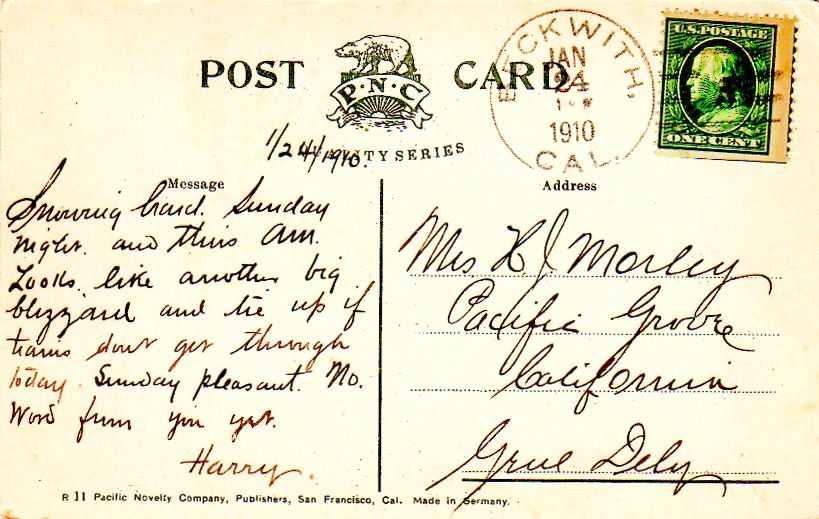 POST CARD
P·N·C
QUALITY SERIES
BECKWITH,
JAN
24
1910
CAL.
U.S. POSTAGE
ONE CENT
1/24/1910.
Message
Snowing hard. Sunday
night. and this Am.
Looks like another big
blizzard and tie up if
trains dont get through
today. Sunday pleasant. No.
Word from you yet.
Harry.
Address
Mrs H J Morley
Pacific Grove
California
Genl Dely
R 11 Pacific Novelty Company, Publishers, San Francisco, Cal. Made in Germany.